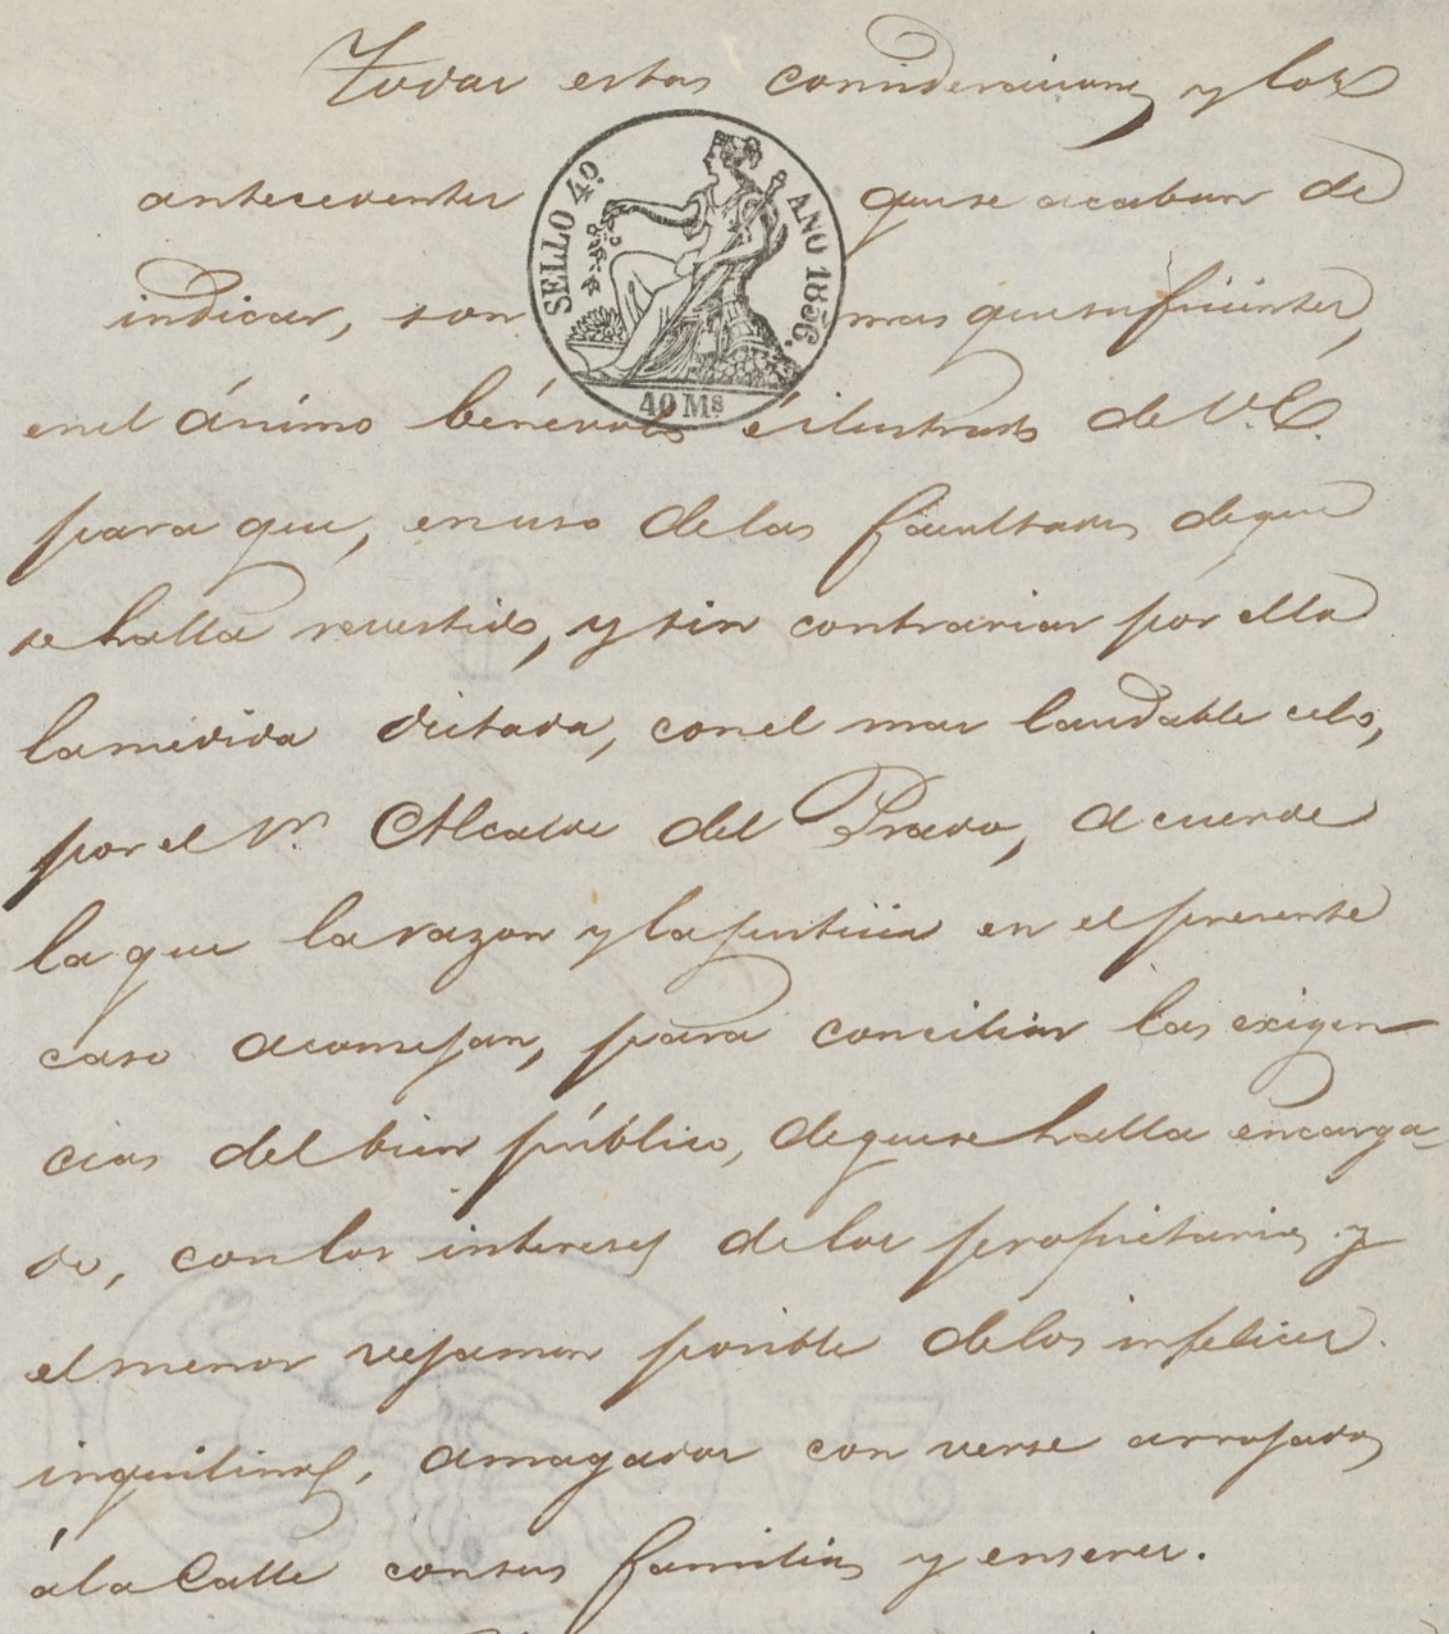 Todas estas consideraciones y los
antecedentes que se acaban de
SELLO 4º. AÑO 1856.
40 Ms
indicar, son mas que suficientes,
en el ánimo benévolo é ilustrado de V.E.
para que, en uso de las facultades de que
se halla revestido, y sin contrariar por ello
la medida dictada, con el mas laudable celo,
por el Sr. Alcalde del Prado, acuerde
la que la razon y la justicia en el presente
caso aconsejan, para conciliar las exigen-
cias del bien público, de que se halla encarga-
do, con los intereses de los propietarios y
el menor vejamen posible de los infelices
inquilinos, amagados con verse arrojados
á la Calle con sus familias y enseres.